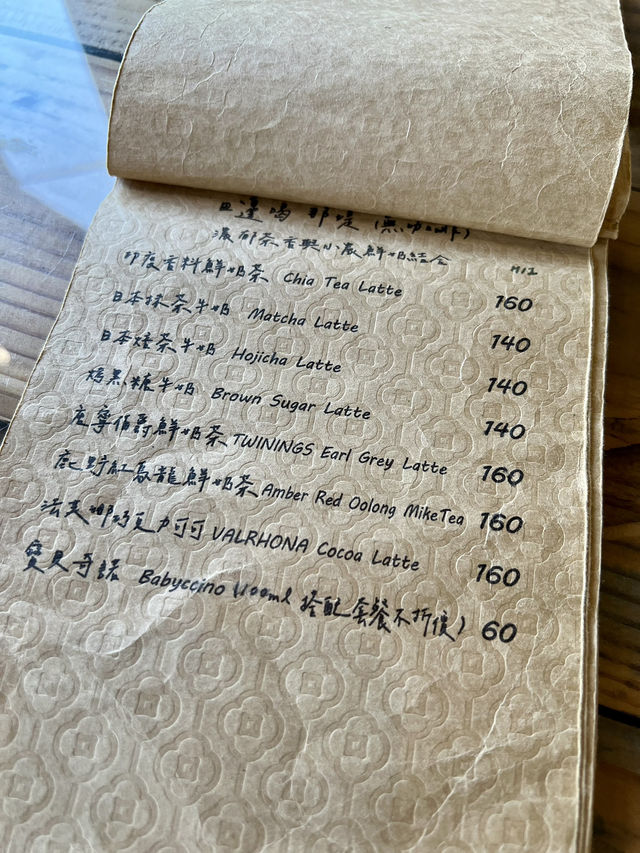 喝 那堤 (無咖啡)
濃郁茶香與小農鮮奶結合
印度香料鮮奶茶 Chia Tea Latte 160
日本抹茶牛奶 Matcha Latte 140
日本焙茶牛奶 Hojicha Latte 140
焗黑糖牛奶 Brown Sugar Latte 140
唐寧伯爵鮮奶茶 TWININGS Earl Grey Latte 160
鹿野紅烏龍鮮奶茶 Amber Red Oolong MikeTea 160
法芙娜巧克力可可 VALRHONA Cocoa Latte 160
寶貝奇諾 Babyccino (100ml 搭配套餐不折價) 60